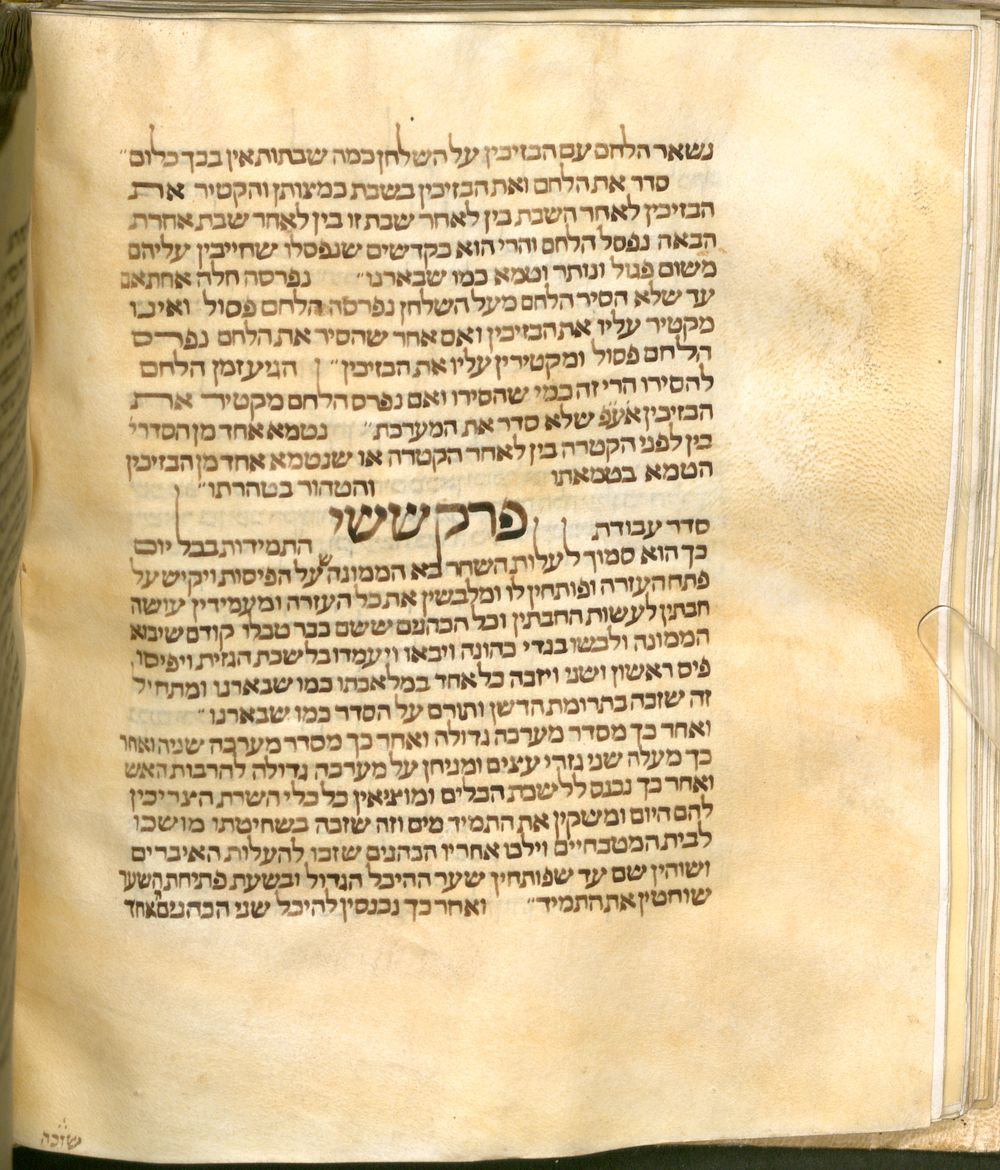 נשאר הלחם עם הבזיכין על השלחן כמה שבתות אין בכך כלום״
סדר את הלחם ואת הבזיכין בשבת כמצותן והקטיר את
הבזיכין לאחר השבת בין לאחר שבת זו בין לאחר שבת אחרת
הבאה נפסל הלחם והרי הוא כקדשים שנפסלו שחייבין עליהם
משום פגול ונותר וטמא כמו שבארנו״ נפרסה חלה אחת אם
עד שלא הסיר הלחם מעל השלחן נפרסה הלחם פסול ואינו
מקטיר עליו את הבזיכין ואם אחר שהסיר את הלחם נפרס
הלחם פסול ומקטירין עליו את הבזיכין״ הגיע זמן הלחם
להסירו הרי זה כמי שהסירו ואם נפרס הלחם מקטיר את
הבזיכין אע״פ שלא סדר את המערכת״ נטמא אחד מן הסדרי׳
בין לפני הקטרה בין לאחר הקטרה או שנטמא אחד מן הבזיכין
הטמא בטמאתו והטהור בטהרתו״
פרק ששי
סדר עבודת התמידות בכל יום
כך הוא סמוך לעלות השחר בא הממונה של הפיסות ויקיש על
פתח העזרה ופותחין לו ומלבשין את כל העזרה ומעמידין עושה
חבתין לעשות החבתין וכל הכהנים ששם כבר טבלו קודם שיבא
הממונה ולבשו בגדי כהונה ויבאו ויעמדו בלשכת הגזית ויפיסו
פיס ראשון ושני ויזכה כל אחד במלאכתו כמו שבארנו ומתחיל
זה שזכה בתרומת הדשן ותורם על הסדר כמו שבארנו״
ואחר כך מסדר מערכה גדולה ואחר כך מסדר מערכה שניה ואחר
כך מעלה שני גזרי עצים ומניחן על מערכה גדולה להרבות האש
ואחר כך נכנס ללשכת הכלים ומוציאין כל כלי השרת הצריכין
להם היום ומשקין את התמיד מים וזה שזכה בשחיטתו מושכו
לבית המטבחיים וילכו אחריו הכהנים שזכו להעלות האיברים
ושוהין שם עד שפותחין שער ההיכל הגדול ובשעת פתיחת השער
שוחטין את התמיד״ ואחר כך נכנסין להיכל שני הכהנים אחד
שזכה